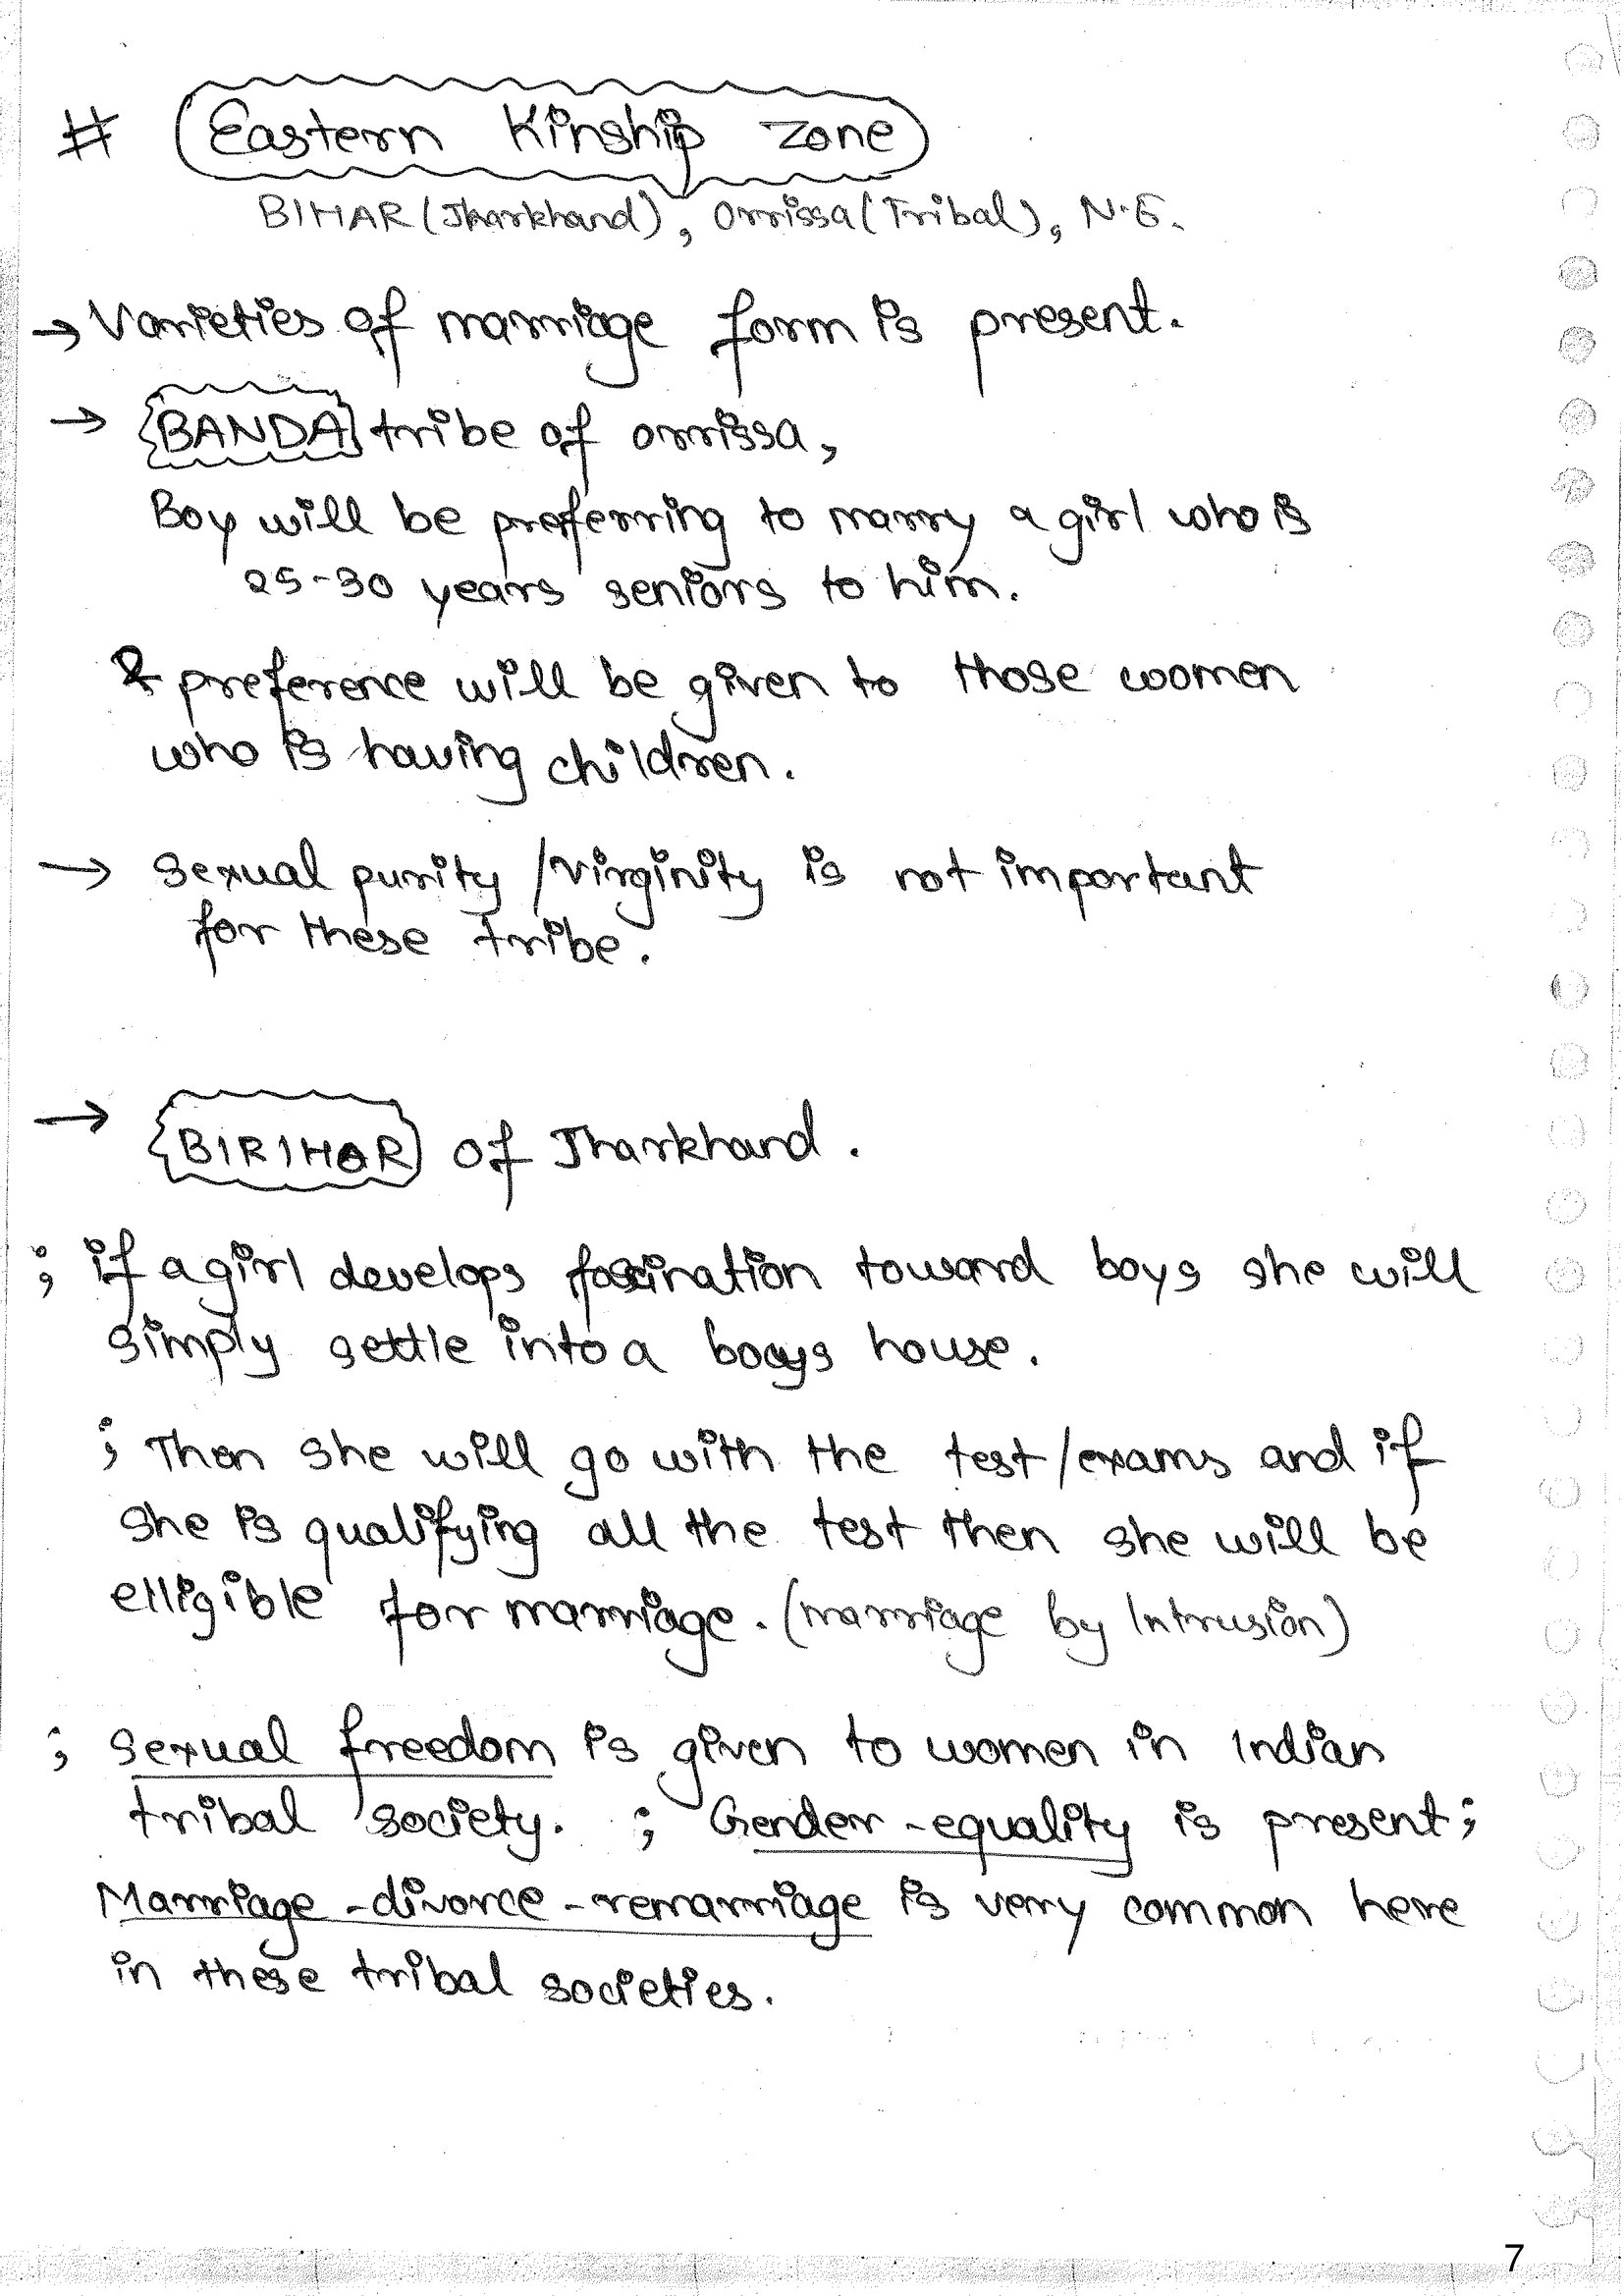 # Eastern Kinship Zone
BIHAR (Jharkhand), Orrissa (Tribal), N.E.
→ Varieties of marriage form is present.
→ BANDA tribe of orrissa,
Boy will be preferring to marry a girl who is
25-30 years seniors to him.
& preference will be given to those women
who is having children.
→ sexual purity / virginity is not important
for these tribe.
→ BIRIHOR of Jharkhand.
; if a girl develops fascination toward boys she will
simply settle into a boays house.
; Then she will go with the test/exams and if
she is qualifying all the test then she will be
elligible for marriage. (marriage by Intrusion)
; sexual freedom is given to women in Indian
tribal society. ; Gender-equality is present;
Marriage-divorce-remarriage is very common here
in these tribal societies.
7